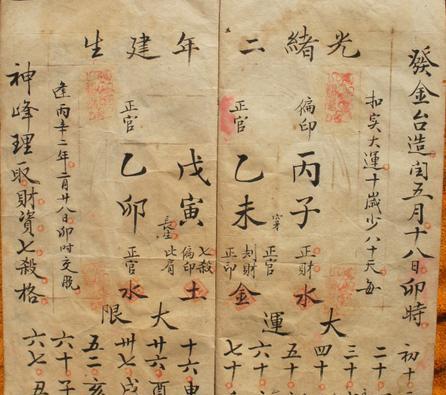 光緒二年建生
發金台造閏五月十八日卯時
扣实大運十歲少八十天每
偏印
丙子
正財
水
正官
乙未
正官
刦財
正印
金
戊寅
長生
七殺
偏印
比肩
土
正官
乙卯
正官
水
大運
初十
二十
三十
四十
五十
六十
七十
大限
十六
廿六酉
卅七戌
五二亥
六十子
六七丑
逢丙辛二年二月廿八日卯时交脱
神峰理取財資七殺格